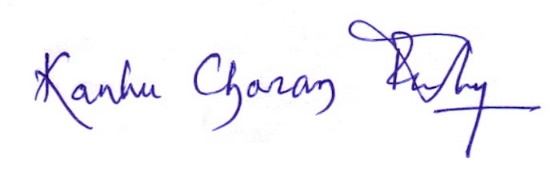 Kanhu Charan